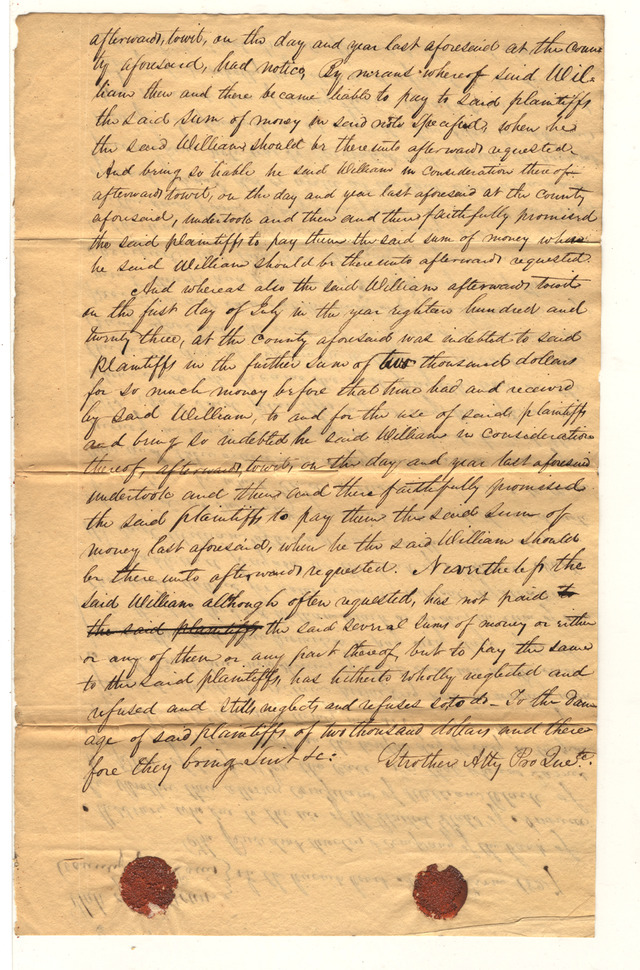 afterwards, towit, on the day and year last aforesaid at the coun
ty aforesaid, had notice, By means whereof said Wil-
liam then and there became liable to pay to said plaintiffs
the said sum of money in said note specified, when he
the said William should be thereunto afterwards requested.
And being so liable he said William in consideration thereof
afterwards towit, on the day and year last aforesaid at the county
aforesaid, undertook and then and there faithfully promised
the said plaintiffs to pay them the said sum of money when
he said William should be thereunto afterwards requested.
And whereas also the said William afterwards towit
on the first day of July in the year eighteen hundred and
twenty three, at the county aforesaid was indebted to said
Plaintiffs in the further sum of two thousand dollars
for so much money before that time had and received
by said William, to and for the use of said plaintiffs
and being so indebted he said William in consideration
thereof, afterwards, towit, on the day and year last aforesaid
undertook and then and there faithfully promised
the said plaintiffs to pay them the said sum of
money last aforesaid, when he the said William should
be there unto afterwards requested. Nevertheless the
said William although often requested, has not paid to
the said plaintiffs the said several sums of money or either
or any of them or any part thereof, but to pay the same
to the said plaintiffs has hitherto wholly neglected and
refused and still neglects and refuses so to do - To the dam
age of said plaintiffs of two thousand dollars and there
fore they bring Suit &c: Strother Atty Pro Quer.